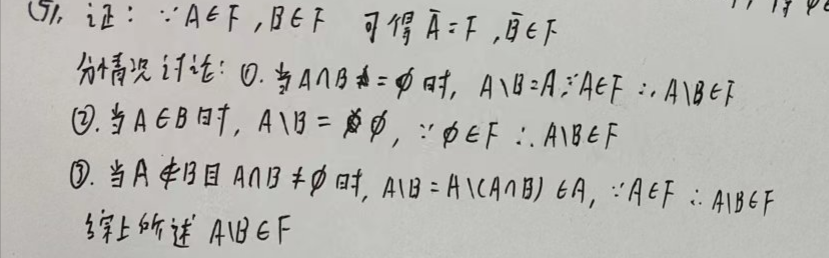 (5). 证: ∵A∈F, B∈F 可得 Ā=F, B̄∈F
分情况讨论: ①. 当A∩B=∅时, A\B=A, ∵A∈F ∴A\B∈F
②. 当A∈B时, A\B=∅, ∵∅∈F ∴A\B∈F
③. 当A∉B且A∩B≠∅时, A\B=A\(A∩B)∈A, ∵A∈F ∴A\B∈F
综上所述 A\B∈F